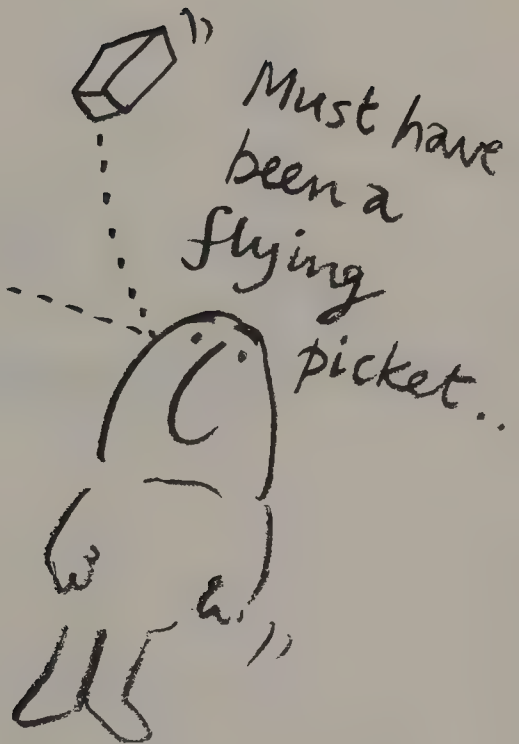 Must have
been a
flying
picket..